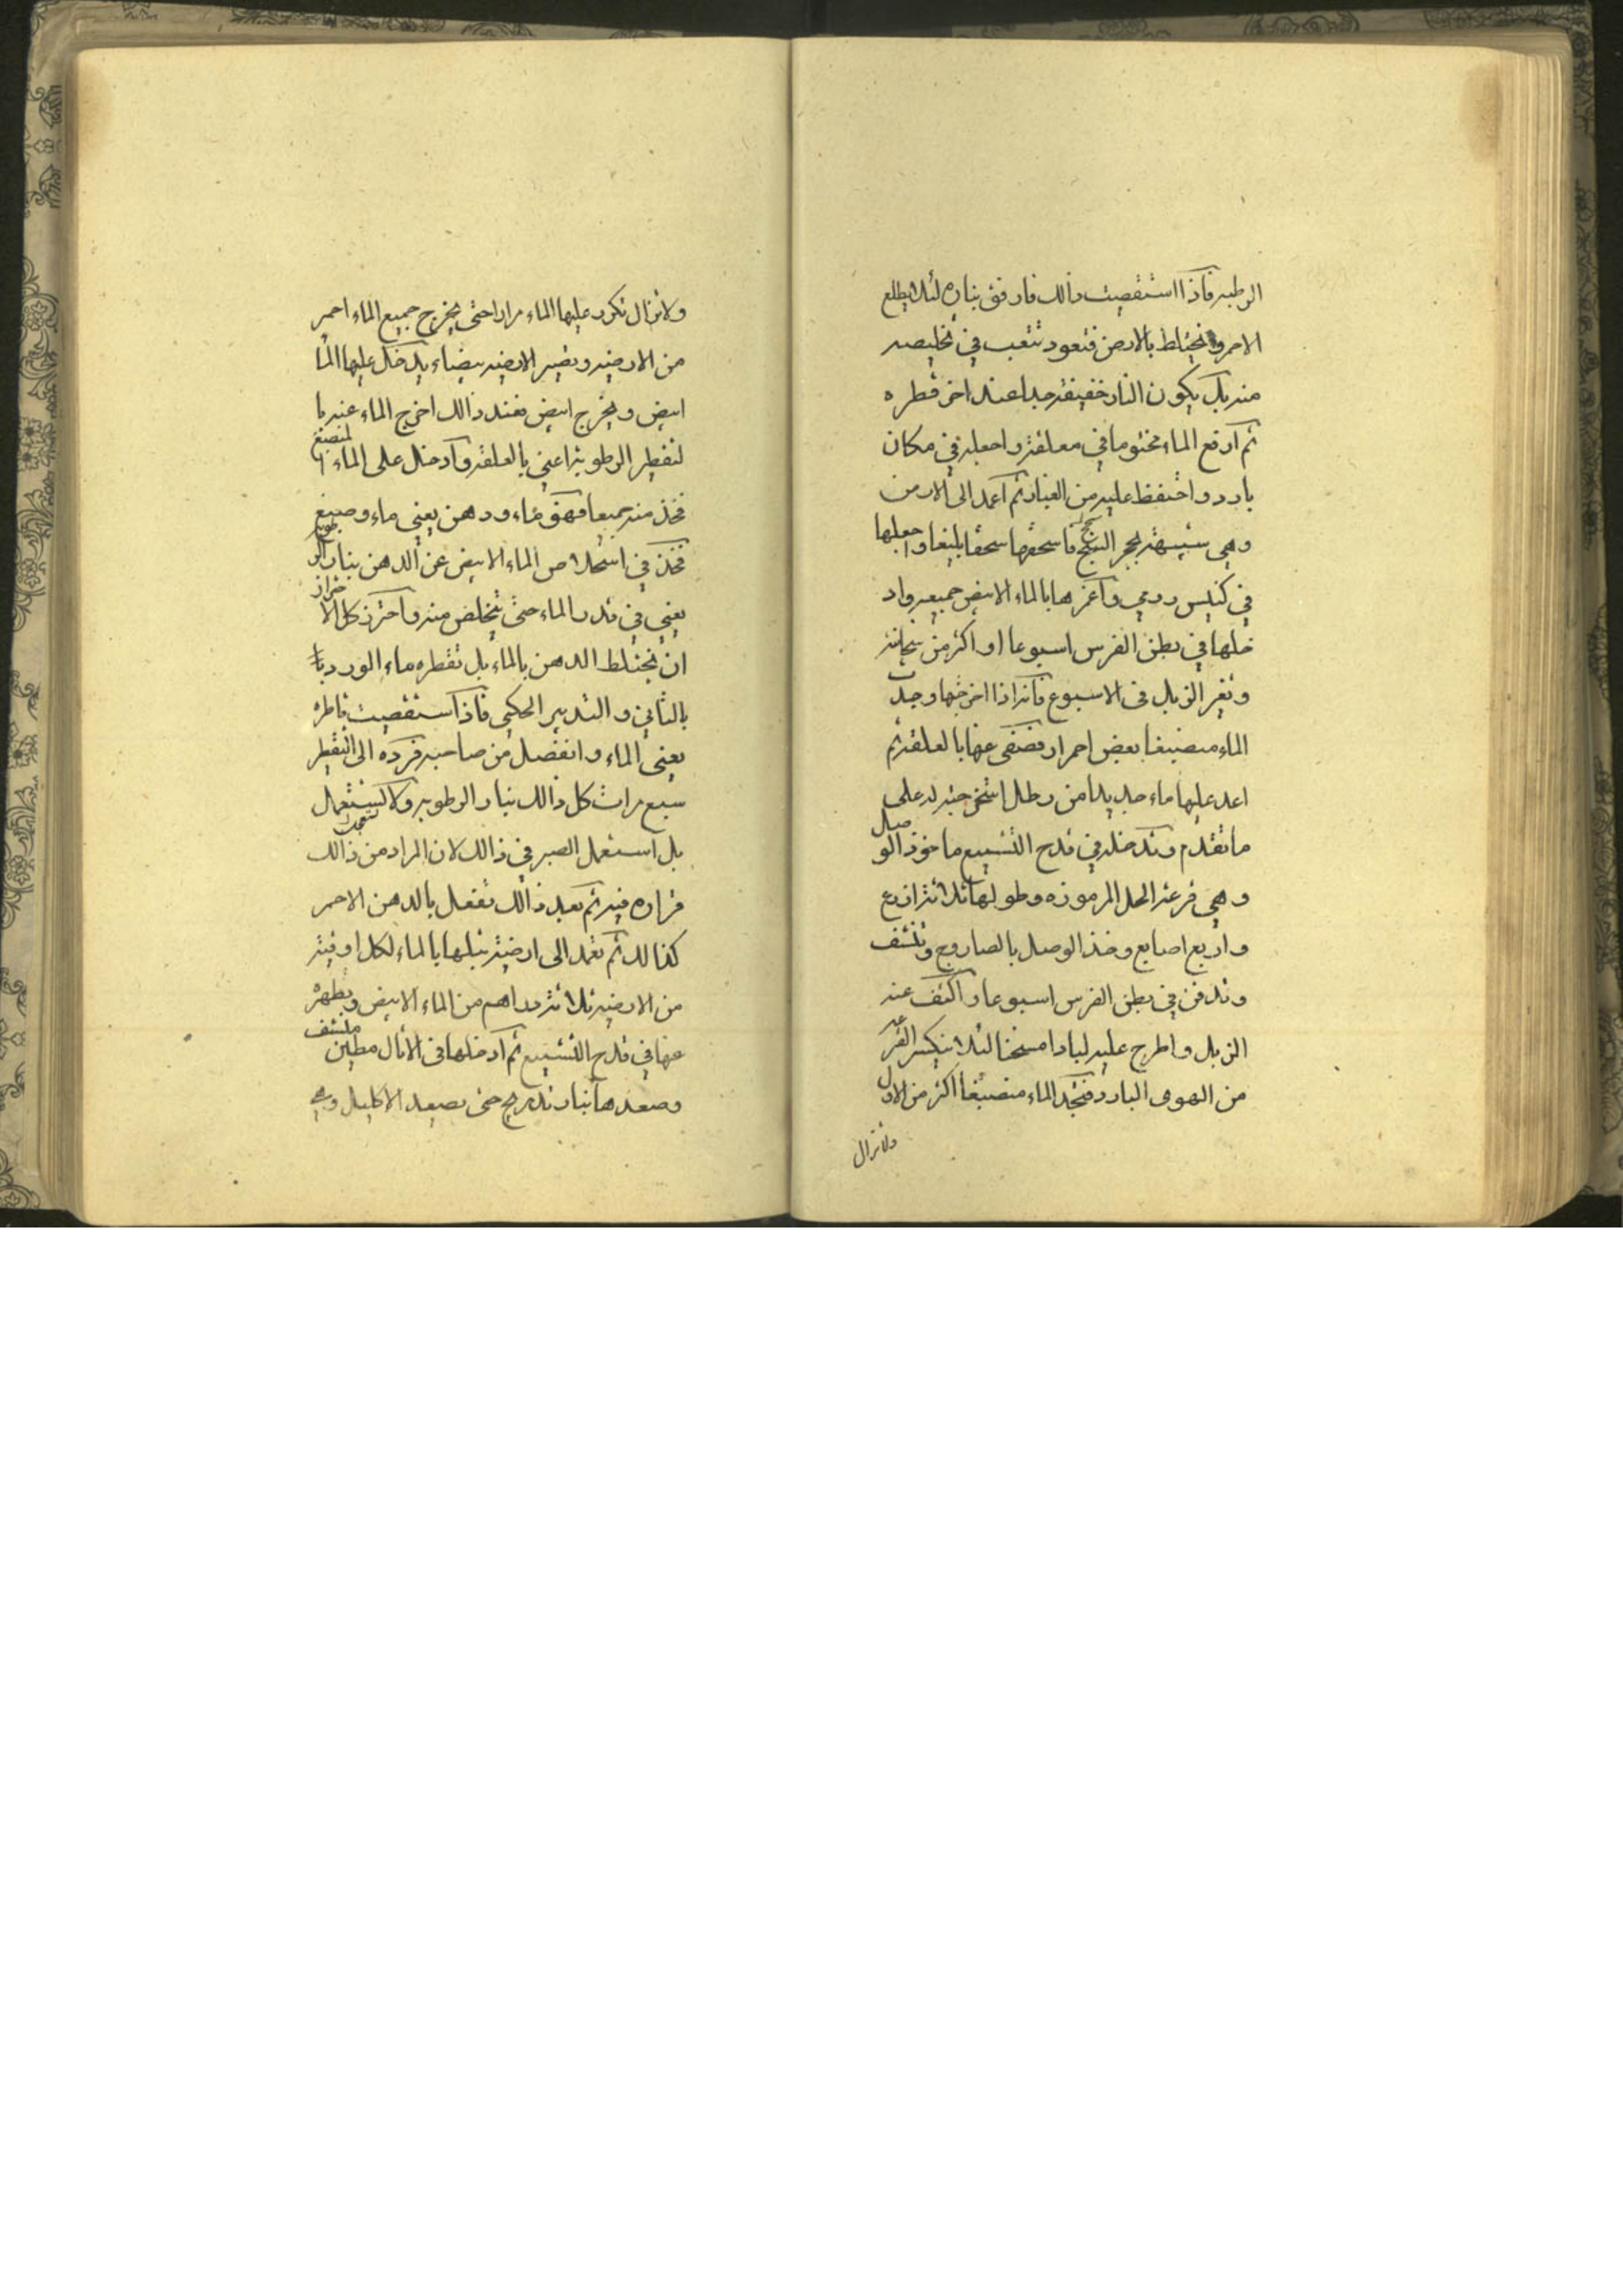 الرطبه فاذا استقصيت ذالك فارفق بناره لئلا يطلع
الاحمر ويختلط بالارض فتعود تتعب في تخليصه
منه بل يكون النار خفيفة جدا عند اخر قطره
ثم ارفع الماء مختوما في معلقة واجعله في مكان
بارد واحتفظ عليه من الغبار ثم اعمد الى الارض
وهي شبيهة بحجر السبج فاسحقها سحقا بليغا واجعلها
في كنيس رومي واغمرها بالماء الابيض جميعه واد
خلها في بطن الفرس اسبوعا او اكثر من
وتغير الزبل في الاسبوع فانه اذا اخرجتها وجدت
الماء منصبغا بعض احمرار فصفى عنها بالعلقة ثم
اعد عليها ماء جديدا من رطل على
ما تقدم وتدخله في قدح التشبيع ماخوذ الوصل
وهي قرعة الحل المرموزه وطولها ثلاثة اذرع
واربع اصابع وخذ الوصل بالصاروج وتنشف
وتدفن في بطن الفرس اسبوعا واكشف عنه
الزبل واطرح عليه لبادا مسخنا لئلا ينكسر القرعه
من الهوى البارد فتجد الماء منصبغا اكثر من الاول
ولاتزال
ولاتزال تكرر عليها الماء مرارا حتى يخرج جميع الماء احمر
من الارضيه وتصير الارضيه بيضاء يدخل عليها الما
ابيض ويخرج ابيض فعند ذالك اخرج الماء عنه با
لتقطير الرطوبة اعني بالعلقة وادخل على الماء المنصبغ
فخذ منه جميعا فهو ماء ودهن يعني ماء وصبغ
فخذ في استخلاص الماء الابيض عن الدهن بنار الرطوبه
يعني في قدر الماء حتى يتخلص منه واحترز كل الاحتراز
ان يختلط الدهن بالماء بل تقطره ماء الورد
بالتاني والتدبير الحكمي فاذا استقصيت قاطره
يعني الماء وانفصل من صاحبه فرده الى التقطير
سبع مرات كل ذالك بنار الرطوبه ولا تستعجل
بل استعمل الصبر في ذالك لان المراد من ذالك
قراره فيه ثم بعد ذالك تفعل بالدهن الاحمر
كذالك ثم تعمد الى ارضية تبلها بالماء لكل اوقية
من الارضيه ثلاثة دراهم من الماء الابيض وتطهره
عنها في قدح التشبيع ثم ادخلها في الاثال مطين منشف
وصعدها بنار تدريج حتى يصعد الاكليل وهي